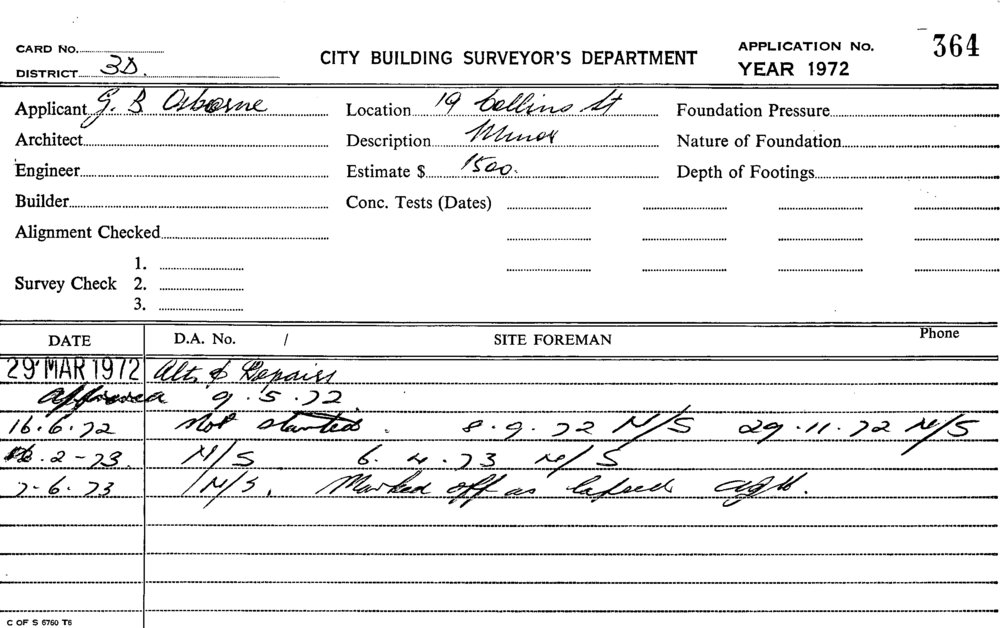 CARD No. CITY BUILDING SURVEYOR'S DEPARTMENT APPLICATION No. 364
DISTRICT 3D. YEAR 1972
Applicant G. B Osborne Location 19 Collins St Foundation Pressure
Architect Description Minor Nature of Foundation
Engineer Estimate $ 1500. Depth of Footings
Builder Conc. Tests (Dates)
Alignment Checked
1.
Survey Check 2.
3.
DATE D.A. No. / SITE FOREMAN Phone
29 MAR 1972 Alts & Repairs
Approved 9.5.72.
16.6.72 Not started. 8.9.72 N/S 29.11.72 N/S
.2-73. N/S 6.4.73 N/S
7-6.73 N/S. Marked off as lapsed
C OF S 6760 T6